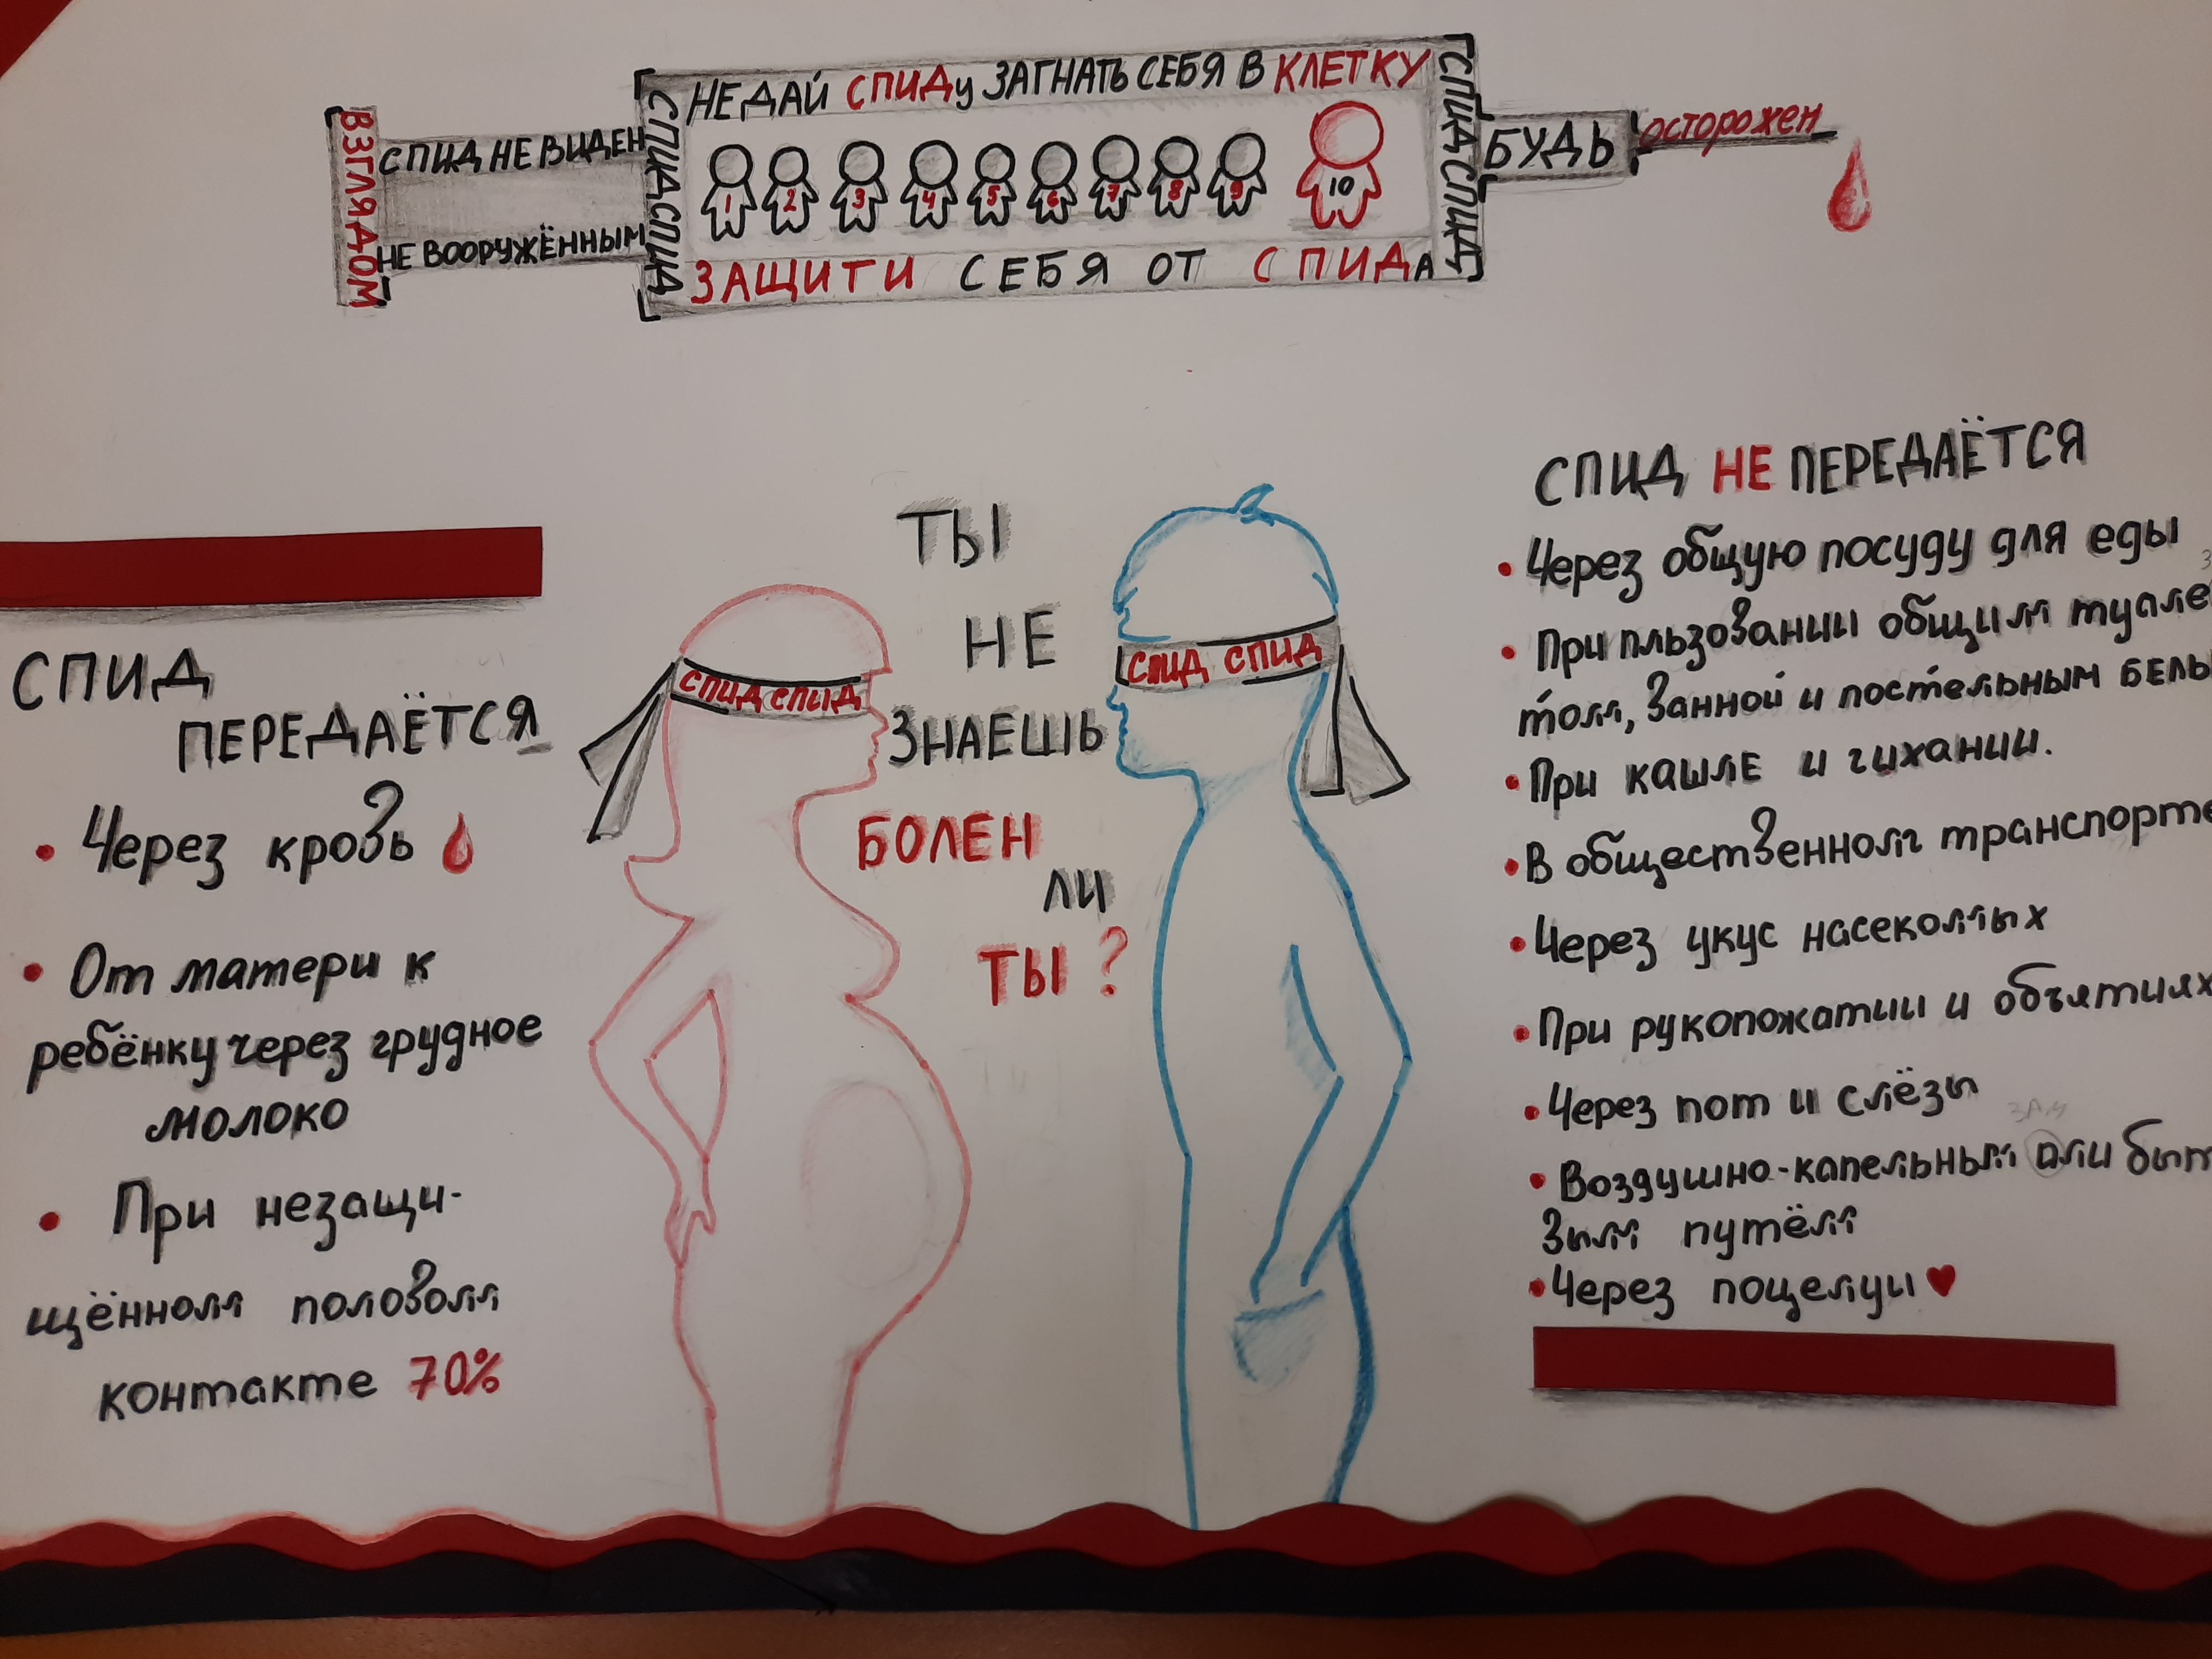 НЕ ДАЙ СПИДу ЗАГНАТЬ СЕБЯ В КЛЕТКУ
ВЗГЛЯДОМ
СПИД НЕ ВИДЕН
НЕ ВООРУЖЁННЫМ
СПИД СПИД
1 2 3 4 5 6 7 8 9 10
СПИД СПИД
БУДЬ
осторожен
ЗАЩИТИ СЕБЯ ОТ СПИДа
СПИД
ПЕРЕДАЁТСЯ
• Через кровь
• От матери к
ребёнку через грудное
молоко
• При незащи-
щённом половом
контакте 70%
ТЫ
НЕ
ЗНАЕШЬ
БОЛЕН
ЛИ
ТЫ?
СПИД СПИД
СПИД СПИД
СПИД НЕ ПЕРЕДАЁТСЯ
• Через общую посуду для еды
• При пльзовании общим туале
том, ванной и постельным БЕЛЬ
• При кашле и чихании.
• В общественном транспорте
• Через укус насекомых
• При рукопожатии и объятиях
• Через пот и слёзы
• Воздушно-капельным или быт
вым путём
• Через поцелуи